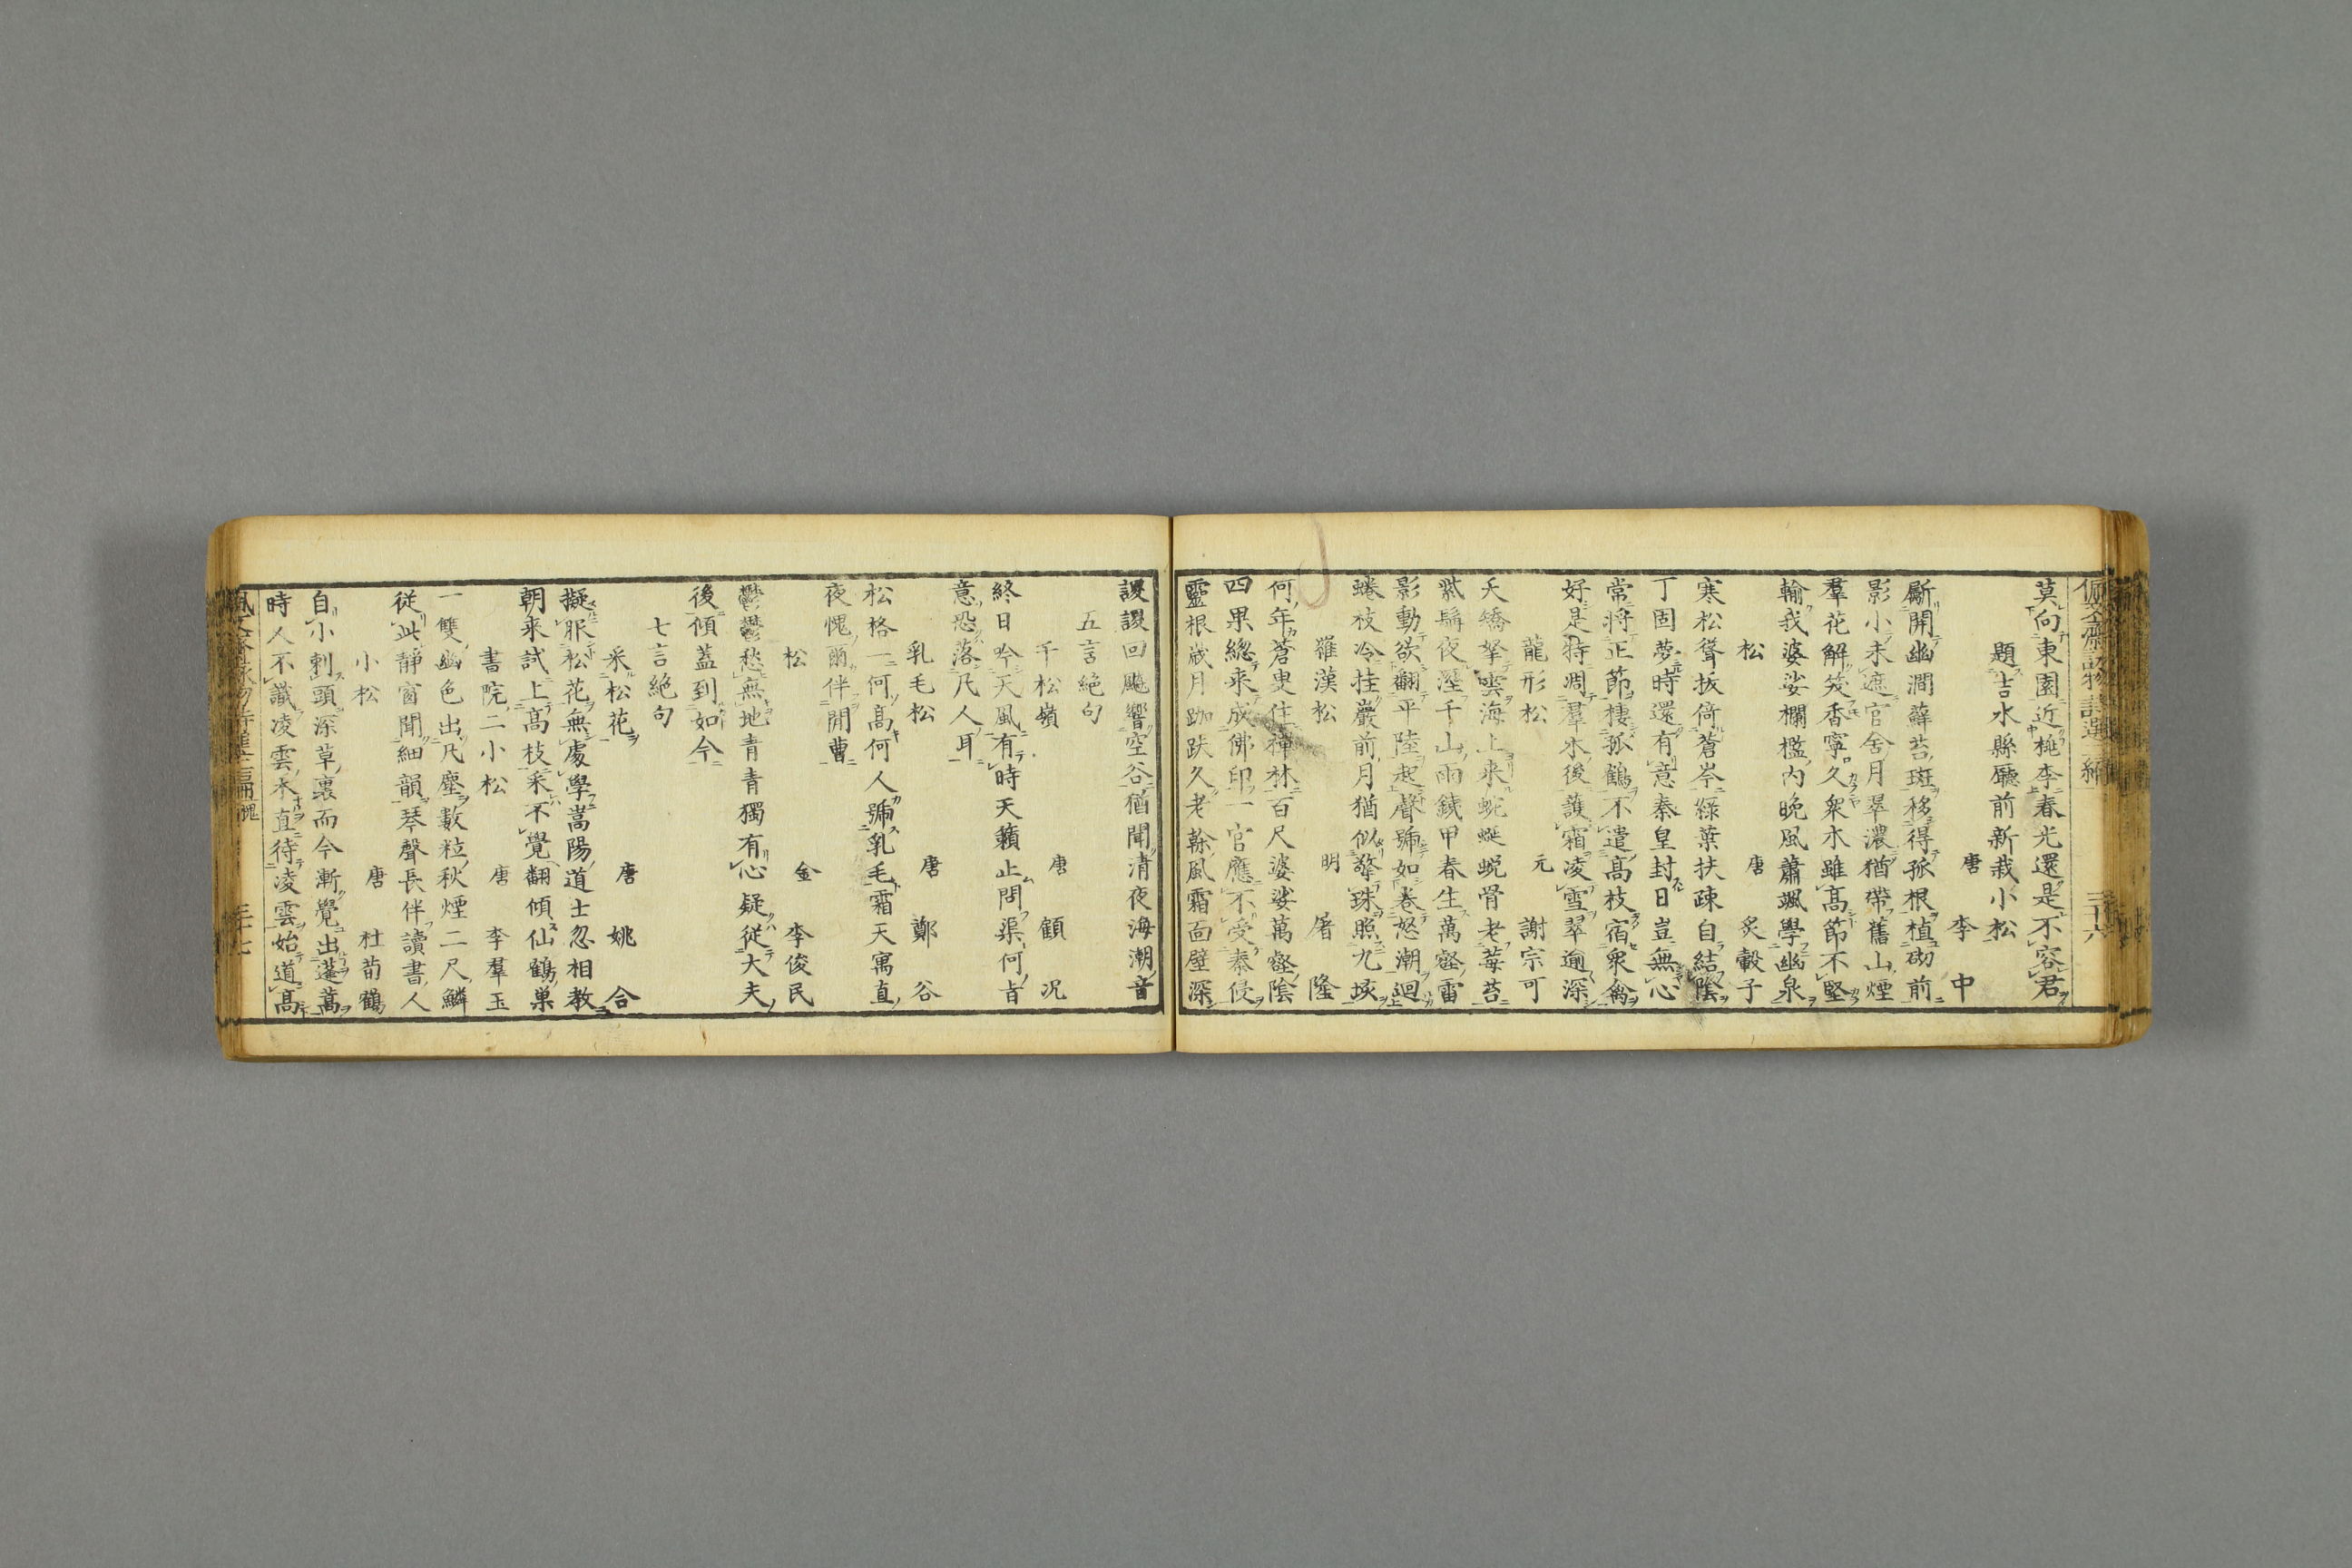 莫向東園近桃李春光還是不容君
題吉水縣廳前新栽小松
唐 李中
斸開幽澗蘚苔斑移得孤根植砌前
影小未遮官舍月翠濃猶帶舊山煙
羣花解笑香寧久衆木雖高節不堅
輸我婆娑欄檻內晚風蕭颯學幽泉
松 唐 炙轂子
寒松聳拔倚蒼岑綠葉扶疎自結陰
丁固夢時還有意秦皇封日豈無心
常將正節棲孤鶴不遣高枝宿衆禽
好是特凋羣木後護霜凌雪翠逾深
龍形松 元 謝宗可
夭矯拏雲海上来蛇蜒蜕骨老莓苔
紫髯夜溼千山雨鐵甲春生萬壑雷
影動欲翻平陸起聲號如卷怒潮廻
蜷枝冷挂巖前月猶似擎珠照九垓
羅漢松 明 屠隆
何年蒼叟住禪林百尺婆娑萬壑陰
四果總来成佛印一官應不受秦侵
靈根歲月跏趺久老榦風霜面壁深
謖謖回飈響空谷猶聞清夜海潮音
五言絕句
千松嶺 唐 顧况
終日吟天風有時天籟止問渠何旨
意恐落凡人耳
乳毛松 唐 鄭谷
松格一何高何人號乳毛霜天寓直
夜愧爾伴閒曹
松 金 李俊民
鬱鬱愁無地青青獨有心疑從大夫
後傾蓋到如今
七言絕句
采松花 唐 姚合
擬服松花無處學嵩陽道士忽相教
朝来試上高枝采不覺翻傾仙鶴巢
書院二小松 唐 李羣玉
一雙幽色出凡塵數粒秋煙二尺鱗
從此靜窗聞細韻琴聲長伴讀書人
小松 唐 杜荀鶴
自小刺頭深草裏而今漸覺出蓬蒿
時人不識凌雲木直待凌雲始道高
三十六